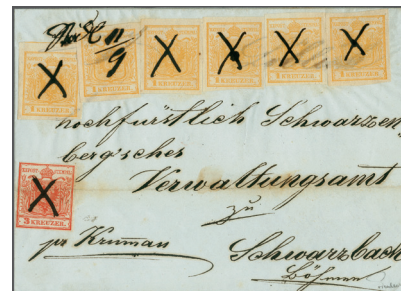 11/9
1 KREUZER.
1 KREUZER.
1 KREUZER.
1 KREUZER.
1 KREUZER.
hochfürstlich Schwarzen
berg'sches
Verwaltungsamt
3 KREUZER.
zu
pr Krumau
Schwarzbach
Böhmen